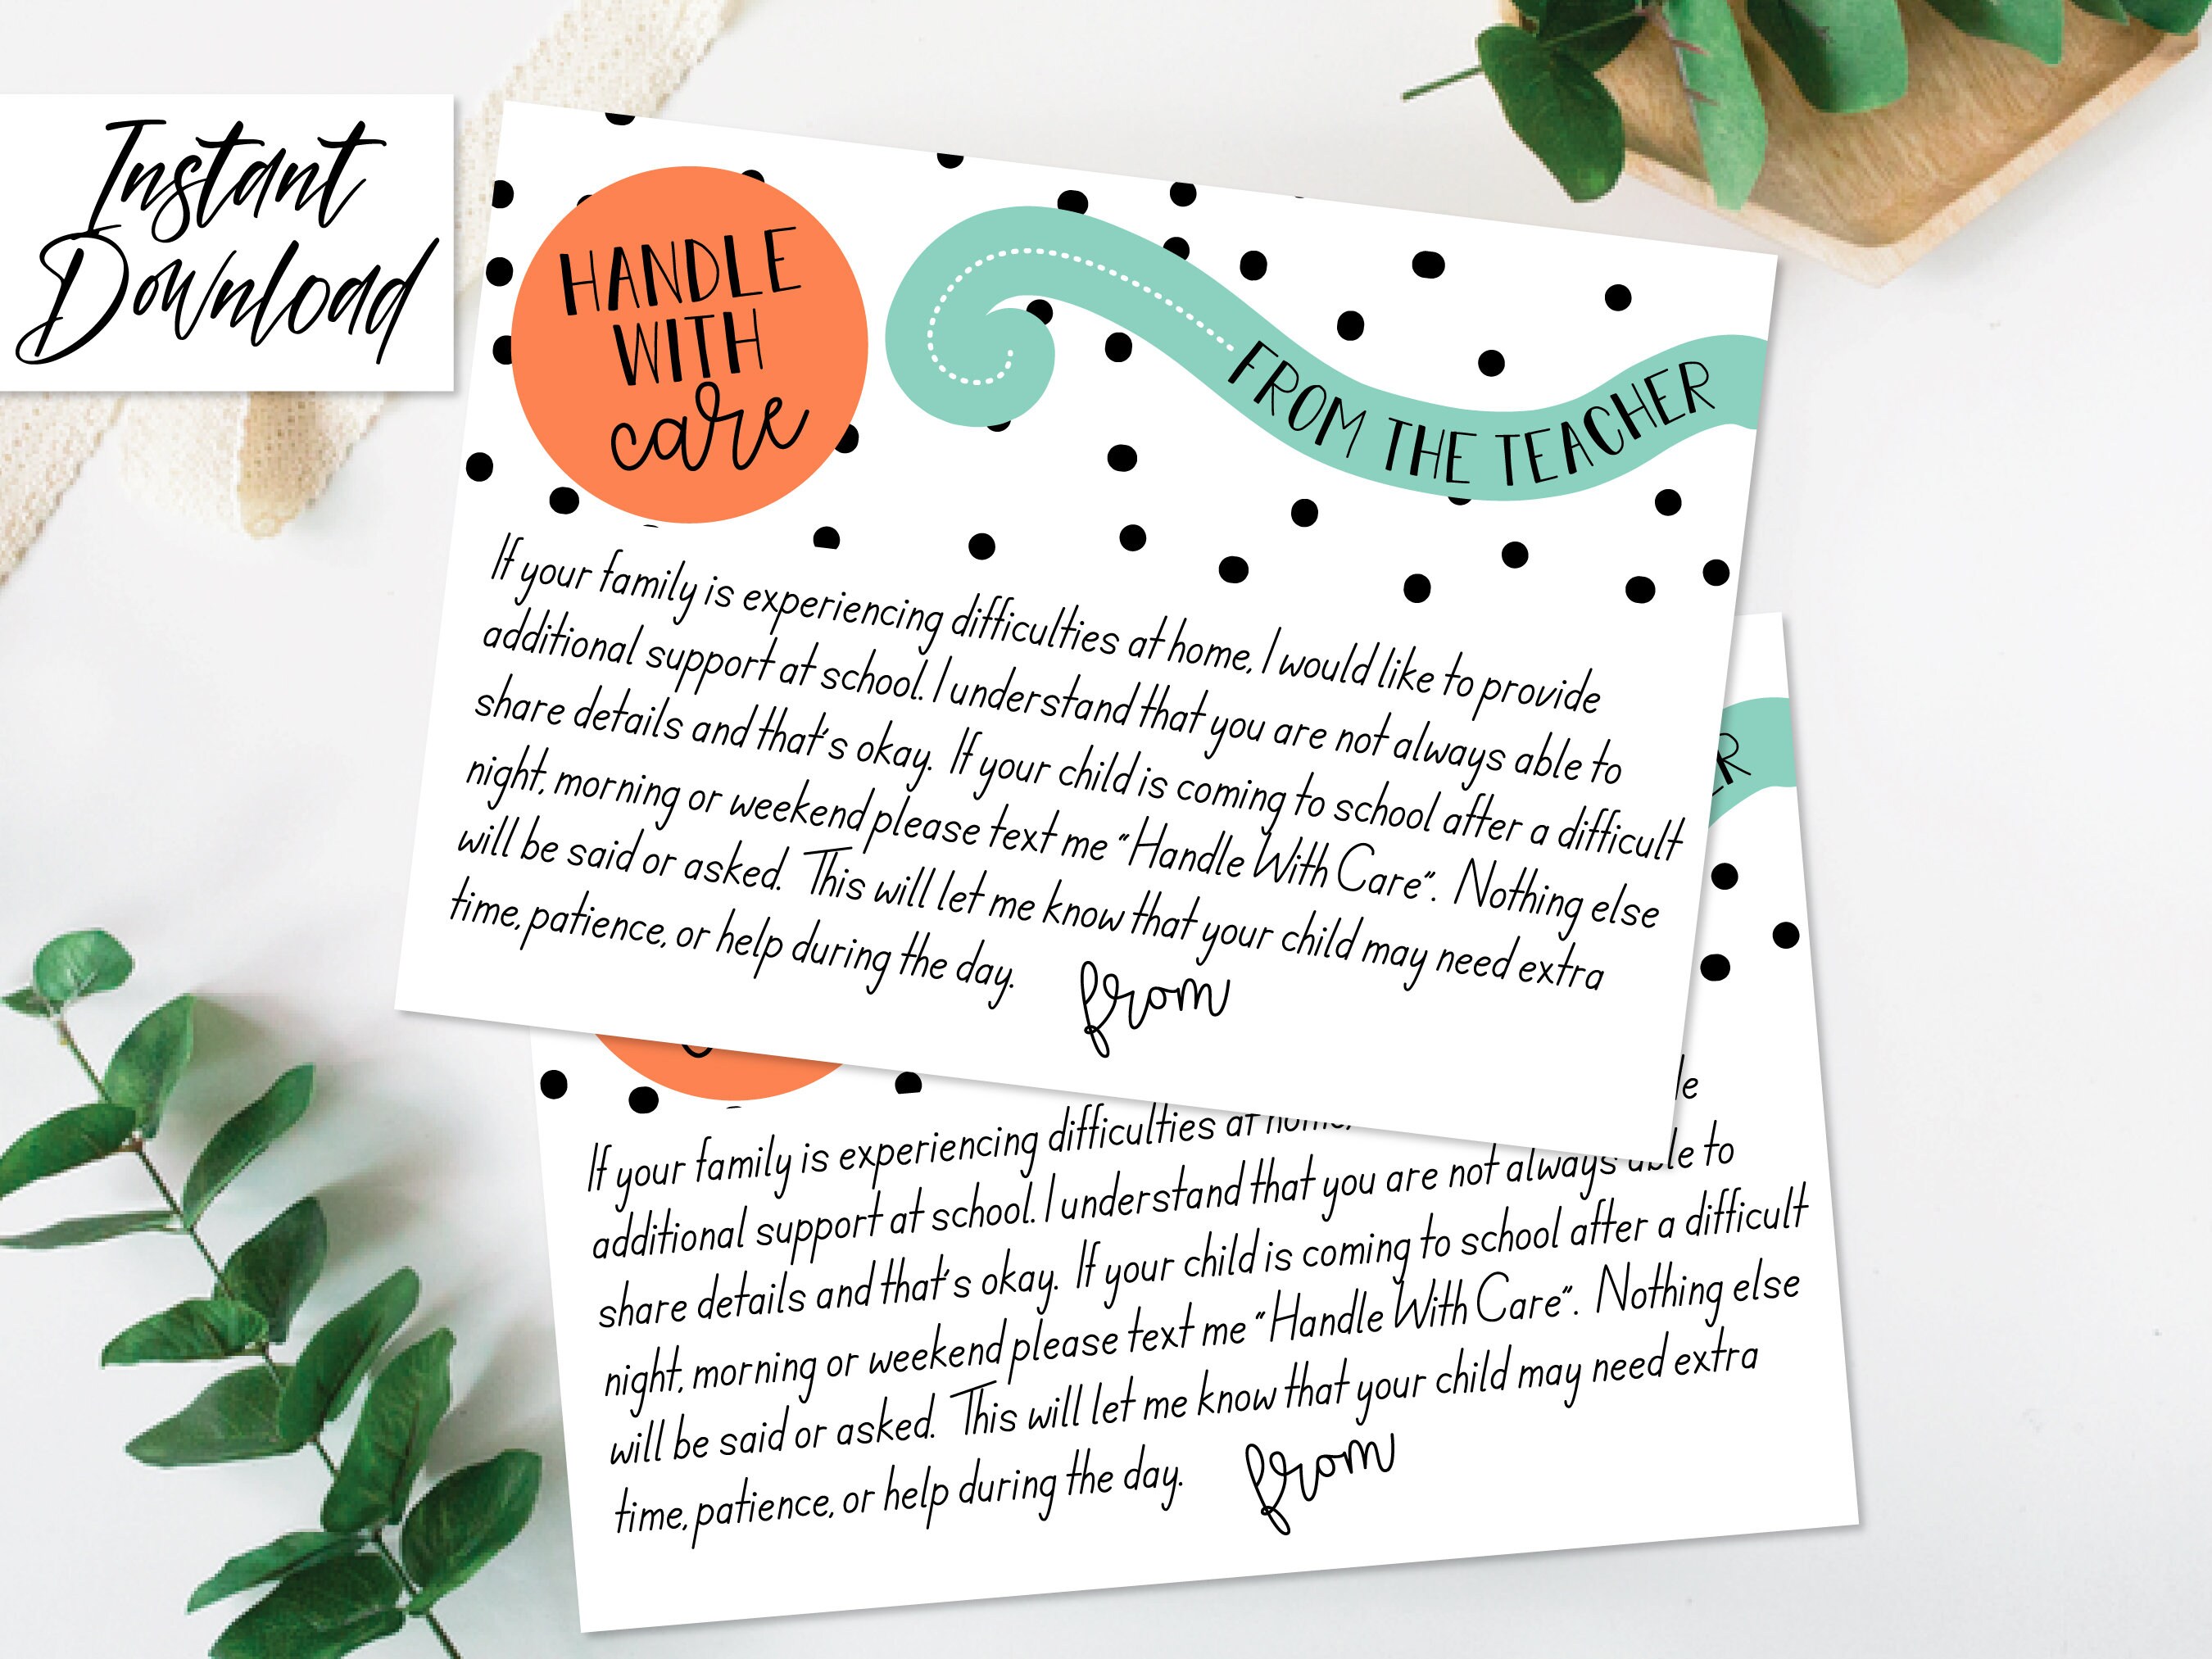 Instant
Download
HANDLE
WITH
care
FROM THE TEACHER
If your family is experiencing difficulties at home, I would like to provide
additional support at school. I understand that you are not always able to
share details and that's okay. If your child is coming to school after a difficult
night, morning or weekend please text me "Handle With Care". Nothing else
will be said or asked. This will let me know that your child may need extra
time, patience, or help during the day.
from
ER
le
If your family is experiencing difficulties at home,
additional support at school. I understand that you are not always able to
share details and that's okay. If your child is coming to school after a difficult
night, morning or weekend please text me "Handle With Care". Nothing else
will be said or asked. This will let me know that your child may need extra
time, patience, or help during the day.
from